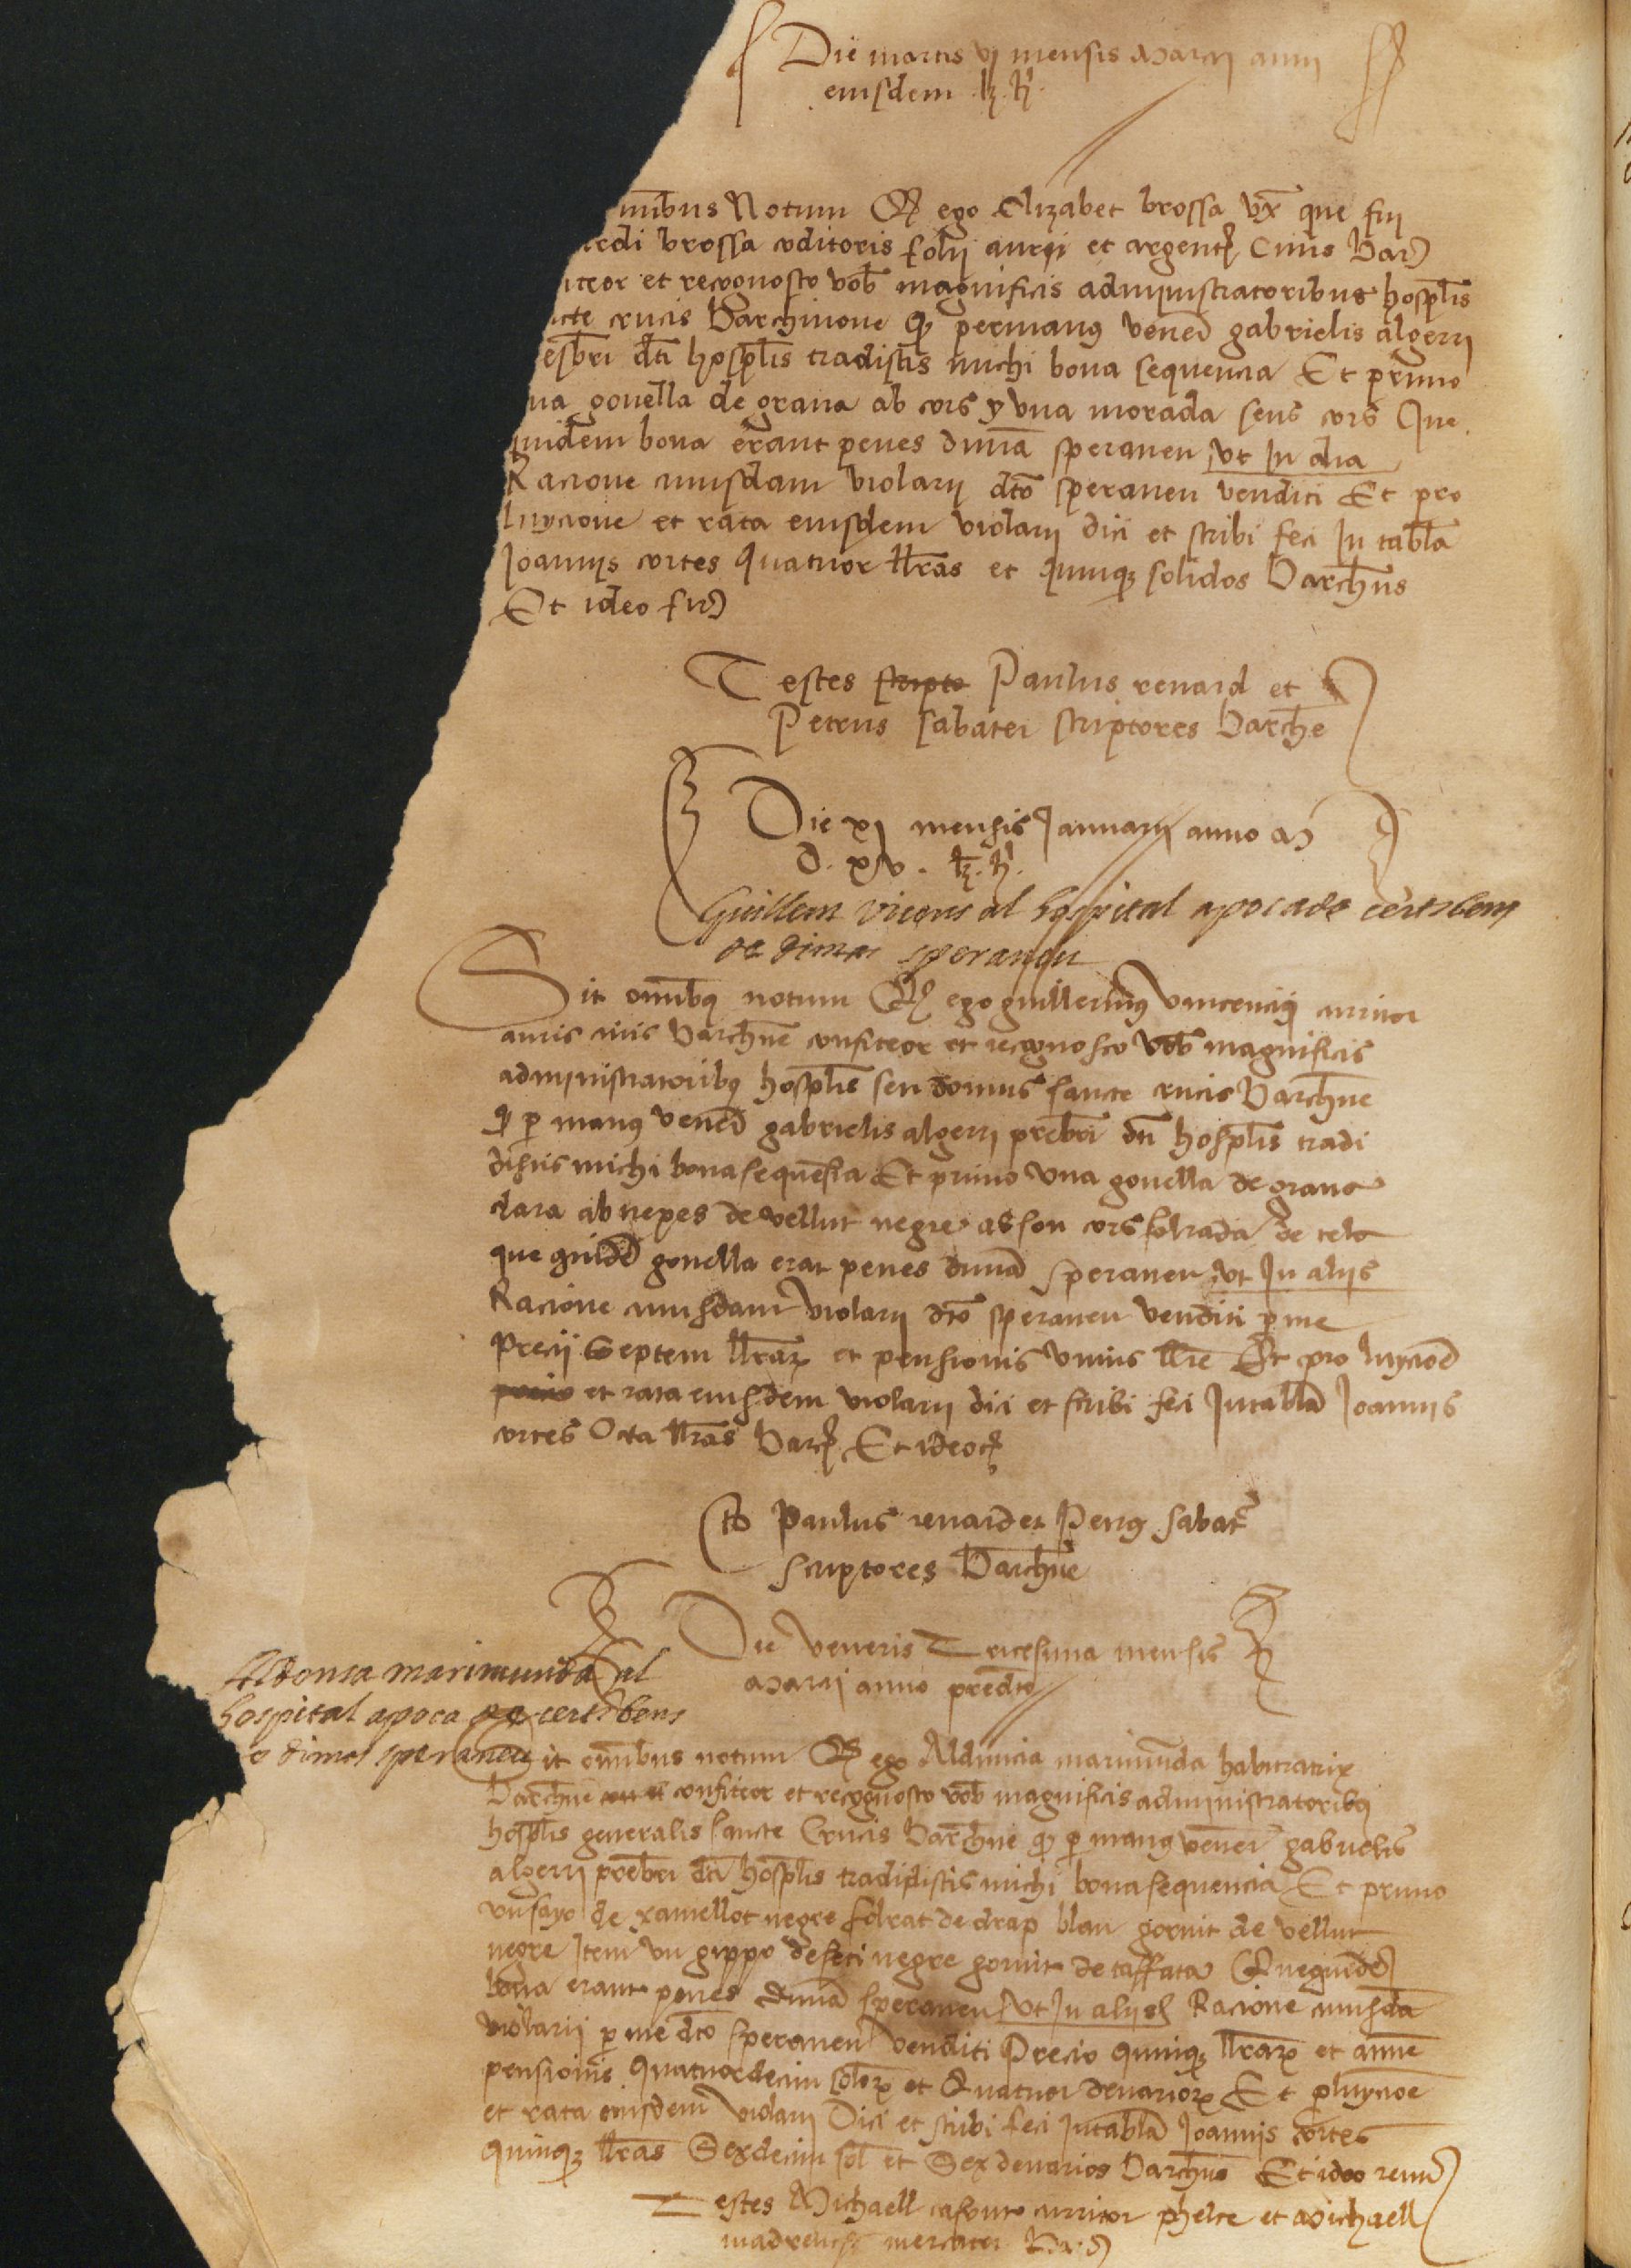 Die martis vj mensis marcij anni
eiusdem
mibus Notum ego Elizabet brossa vx̄ que fuj
redi brossa coditoris folij aurij et argentj Ciuis Bar
iteor et recognosco vob magnificis administratoribus hospl̄is
cte crucis barchinone permanus vener̄ gabrielis algerij
esbr̄i dt̄i hospl̄is tradistis michi bona sequencia Et primo
na gonella de grana ab cors y vna morada sens cors Que
quidem bona erant penes dimā speraneu vt In alia
Racione cuiusdam violarij dc̄to speraneu venditi Et pro
luycione et rata eiusdem violarij dici et scribi feci In tabl̄a
Joannis cortes Quatuor ll̄ras et quinqȝ solidos barch̄ns
Et ideo
Testes Paulus renard et
Petrus sabater scriptores barch̄e
Die xj mensis Januarij anno M
D. xlv.
Guillem vicens al hospital apoca de certs bens
de dimas speraneu
Sit omībus notum ego guillermus vincencij curritor
auris ciuis barch̄ne confiteor et recognosco vob magnificis
administratoribus hospl̄is seu domus sancte crucis barch̄ne
ꝑ manus vener̄ gabrielis algerij prebr̄i dt̄i hospl̄is tradi
distis michi bona sequēsia Et primo vna gonella de grana
clara ab nepes de vellut negre ab son cors folrada de tela
que quidē gonella erat penes dimā speraneu vt In alijs
Racione cuiusdam violarij dc̄to speraneu venditi ꝑ me
precij Septem ll̄rarꝫ et pensionis vnius ll̄re Et pro luycioē
et rata eiusdem violarij dici et scribi feci In tabl̄a Joannis
cortes Octa ll̄ras barch Et ideo
Paulus renard et Petrus sabat̄
scriptores barch̄ne
Die veneris Tricesima mensis
marcij anno predc̄to
Aldonsa marimunda al
hospital apoca de certs bens
e dimas speraneu
it omībus notum ego Alduncia marimūda habitatrix
barch̄ne confiteor et recognosco vob magnificis administratoribus
hospl̄is generalis sancte Crucis barch̄ne ꝑ manus vener̄ gabrielis
algerij prebr̄i dt̄i hospl̄is tradidistis michi bona sequencia Et primo
vn sayo de xamellot negre folrat de drap blau gornit de vellut
negre Item vn gippo de seti negre gornit de taffata Que quidē
bona erant penes dimā speraneu vt In alijs Racione cuiusdā
violarij ꝑ me dc̄to speraneu venditi Precio quinqȝ ll̄rarꝫ et annue
pensionis quatuordecim solorꝫ et Quatuor denariorꝫ Et ꝑ luycioē
et rata eiusdem violarij Dici et scribi feci In tabl̄a Joannis cortes
quinqȝ ll̄ras Sexdecim sol et Sex denarios barch̄ns Et ideo
Testes Michaell curritor et Michaell